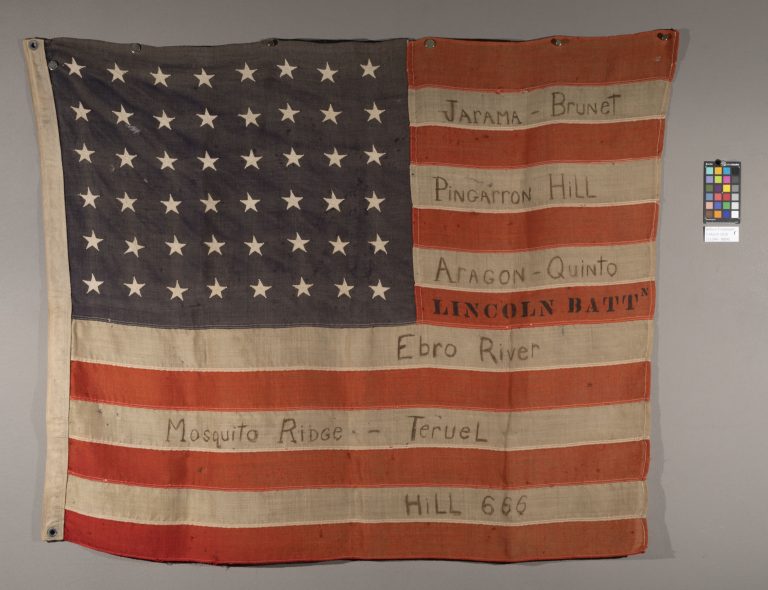 JARAMA - BRUNET
PINGARRON HILL
ARAGON - QUINTO
LINCOLN BATTN
Ebro River
Mosquito Ridge. - Teruel
Hill 666